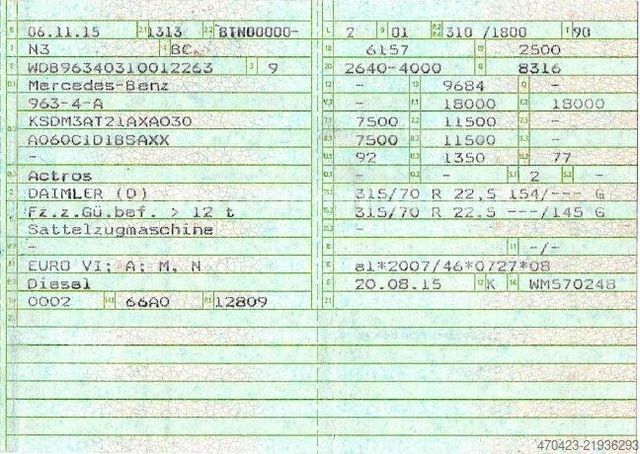 06.11.15 1313 BTN00000- L 2 9 01 310 /1800 T 90
N3 BC. 18 6157 19 2500
WDB96340310012263 3 9 20 2640-4000 G 8316
Mercedes-Benz 12 - 13 9684 Q -
963-4-A - 18000 18000
KSDM3AT21AXA030 7500 11500
A060C1D1BSAXX 7500 11500
- 92 1350 77
Actros - - 2 -
DAIMLER (D) 315/70 R 22,5 154/--- G
Fz.z.Gü.bef. > 12 t 315/70 R 22.5 ---/145 G
Sattelzugmaschine -
- -/-
EURO VI; A; M, N K e1*2007/46*0727*08
Diesel 6 20.08.15 17 K 16 WM570248
0002 66A0 12809 21
470423-21936293